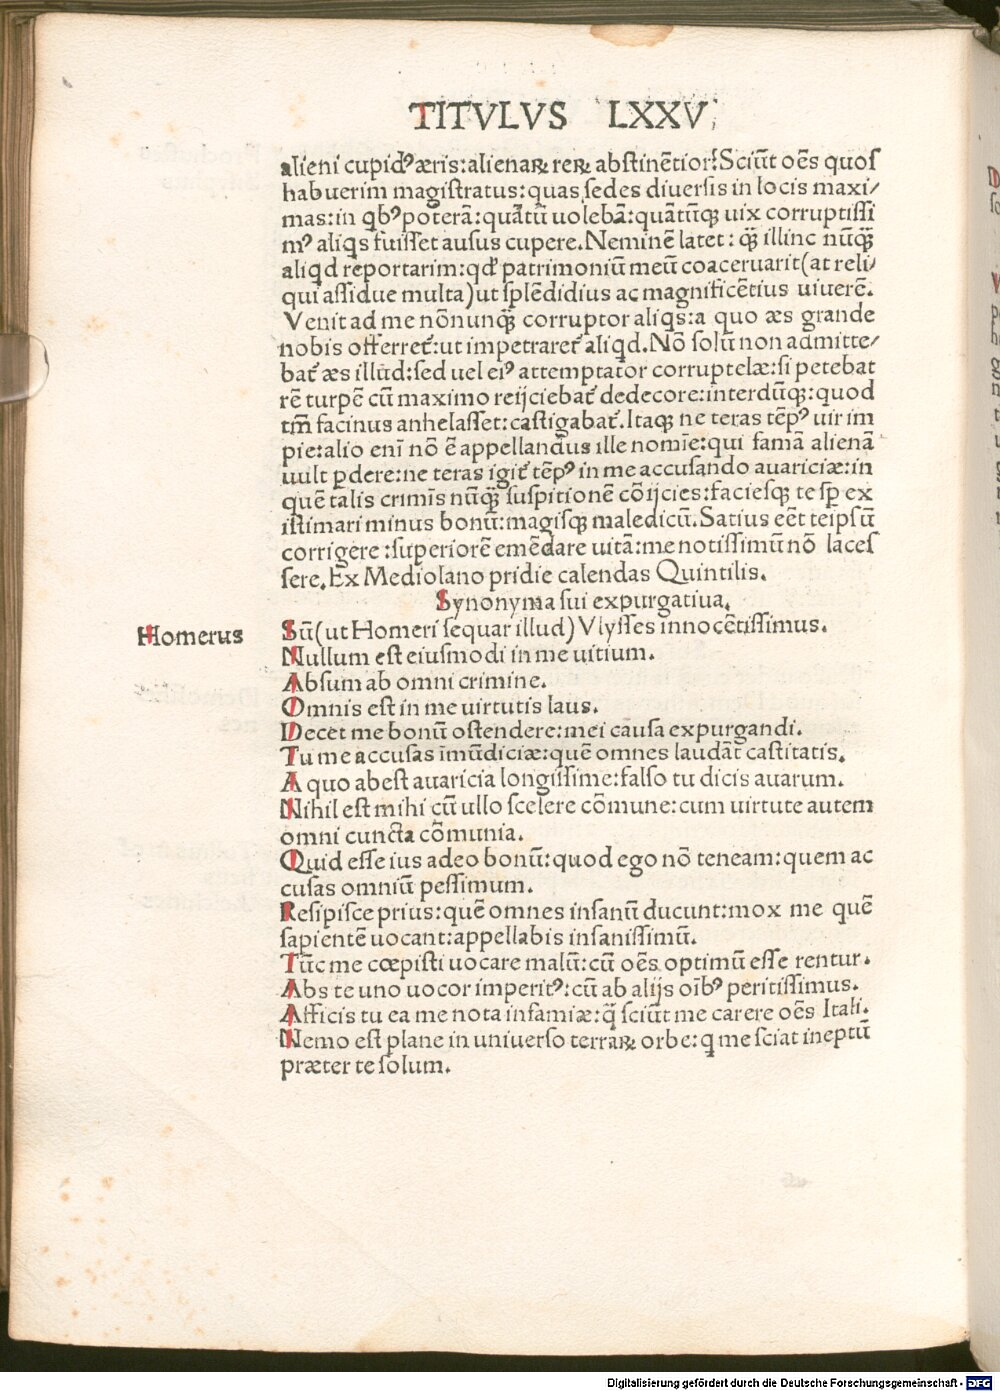 TITVLVS LXXV
alieni cupidꝰ æris:alienaꝝ reꝝ abstinētior?Sciūt oēs quos
habuerim magistratus:quas sedes diuersis in locis maxi/
mas:in qbꝰ poterā:quātū uolebā:quātūqȝ uix corruptissi
mꝰ aliqs fuisset ausus cupere.Neminē latet: qȝ̄ illinc nūqȝ̄
aliqd reportarim:qd' patrimoniū meū coaceruarit(at reli/
qui assidue multa)ut splēdidius ac magnificētius uiuerē.
Venit ad me nōnunqȝ̄ corruptor aliqs:a quo æs grande
nobis offerret᷑:ut impetraret᷑ aliqd.Nō solū non admitte/
bat᷑ æs illud:sed uel eiꝰ attemptator corruptelæ:si petebat
rē turpē cū maximo reijciebat᷑ dedecore:interdūqȝ:quod
tm̄ facinus anhelasset:castigabat᷑.Itaqȝ ne teras tēpꝰ uir im
pie:alio eni nō ē appellandus ille nomīe:qui famā alienā
uult ꝑdere:ne teras igit᷑ tēpꝰ in me accusando auariciæ:in
quē talis crimīs nūqȝ̄ suspitionē cōijcies:faciesqȝ te sꝑ ex
istimari minus bonū:magisqȝ maledicū.Satius eēt teipsū
corrigere:superiorē emēdare uitā:me notissimū nō laces
sere.Ex Mediolano pridie calendas Quintilis.
Synonyma sui expurgatiua.
Homerus
Sū(ut Homeri sequar illud)Vlysses innocētissimus.
Nullum est eiusmodi in me uitium.
Absum ab omni crimine.
Omnis est in me uirtutis laus.
Decet me bonū ostendere:mei causa expurgandi.
Tu me accusas īmūdiciæ:quē omnes laudāt castitatis.
A quo abest auaricia longissime:falso tu dicis auarum.
Nihil est mihi cū ullo scelere cōmune:cum uirtute autem
omni cuncta cōmunia.
Quid esse ius adeo bonū:quod ego nō teneam:quem ac
cusas omniū pessimum.
Resipisce prius:quē omnes insanū ducunt:mox me quē
sapientē uocant:appellabis insanissimū.
Tūc me cœpisti uocare malū:cū oēs optimū esse rentur.
Abs te uno uocor imperitꝰ:cū ab alijs oībꝰ peritissimus.
Afficis tu ea me nota infamiæ:q̄ sciūt me carere oēs Itali.
Nemo est plane in uniuerso terraꝝ orbe:q me sciat ineptū
præter te solum.
Digitalisierung gefördert durch die Deutsche Forschungsgemeinschaft - DFG